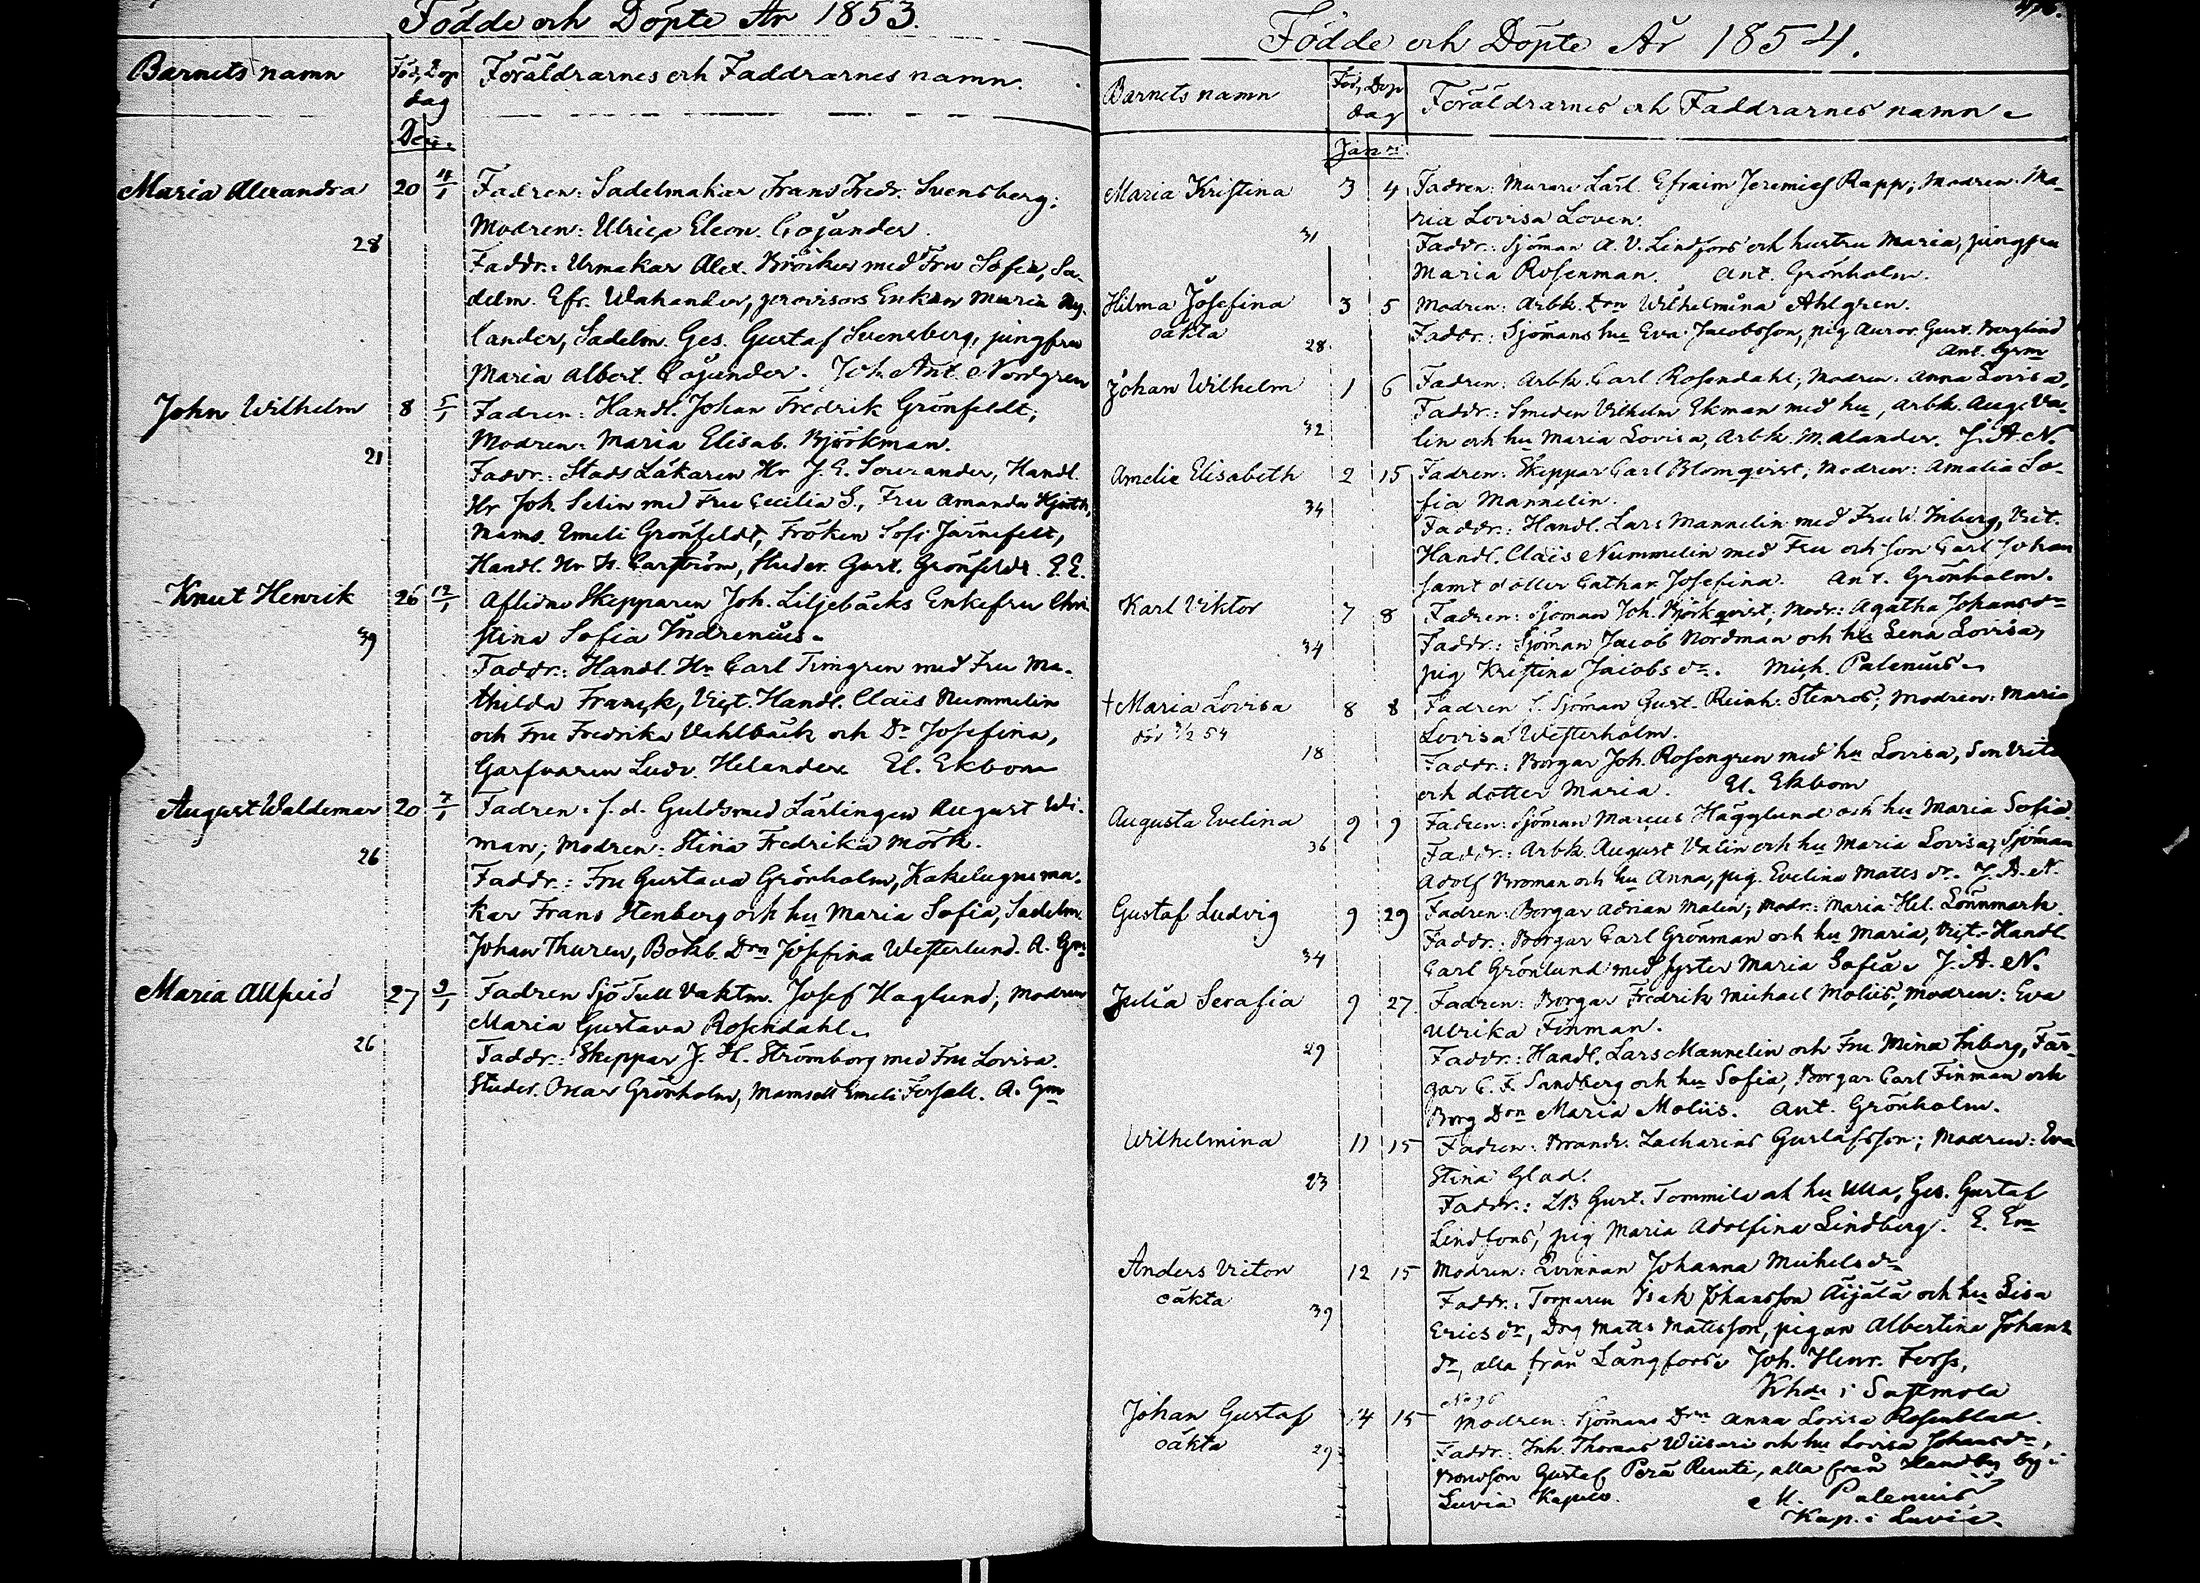 Födde och Döpte År 1853.
Barnets namn
Föd. Döp
dag
Föräldrarnes och Faddrarnes namn.
Dec.
Maria Alexandra 20 4/1 Fadren: Sadelmakar Frans Fredr. Svensberg;
Modren: Ulrica Eleon. Cajander.
28
Faddr.: Urmakar Alex. med Fru Sofia, Sa-
delm. Efr. Wahander, provisors Enkan Maria Ny-
lander, Sadelm. Ges. Gustaf Svensberg, jungfru
Maria Albert. Cajander. Joh. Ant. Nordgren
John Wilhelm 8 5/1 Fadren: Handl. Johan Fredrik Grönfeldt;
Modren: Maria Elisab. Björkman.
21
Faddr.: Stads Läkaren Hr J. E. Sourander, Handl.
Hr Joh. Selin med Fru Cecilia S., Fru Amanda
Mams. Emeli Grönfeldt, Fröken Sofi Järnefelt,
Handl. Hr Is. Carström, Studer. Gust. Grönfeldt. E. E.
Knut Henrik 26 12/1 Aflidne Skepparen Joh. Liljebäcks Enkefru Chri-
stina Sofia Indrenius.
39
Faddr.: Handl. Hr Carl Timgren med Fru Ma-
thilda Franck, Vict. Handl. Claës Nummelin
och Fru Fredrika Vahlbäck och Dr Josefina,
Garfvaren Ludv. Helander. El. Ekbom
August Waldemar 20 7/1 Fadren: f. d. Guldsmed Lärlingen August Wi-
man; Modren: Stina Fredrika Mörk.
26
Faddr.: Fru Gustava Grönholm, Kakelugnsma-
kar Frans Stenberg och hu Maria Sofia, Sadelm.
Johan Thuren, Bokb. Drn Josefina Westerlund. A. Gm
Maria Allfrid 27 9/1 Fadren Sjö Tull Vaktm. Josef Haglund; Modren
Maria Gustava Rosendahl.
26
Faddr.: Skeppar J. H. Strömborg med Fru Lovisa.
Studer. Oscar Grönholm, Mamsell Emeli Forsell. A. Gm
Födde och Döpte År 1854.
Barnets namn
Föd. Döp
dag
Föräldrarnes och Faddrarnes namn.
Janri
Maria Kristina 3 4 Fadren: Murare Lärl. Efraim Jeremias Rapp; Modren: Ma-
ria Lovisa Loven.
31
Faddr.: Sjöman A. V. Lindfors och hustru Maria, jungfru
Maria Rosenman. Ant. Grönholm.
Hilma Josefina 3 5 Modren: Arbk. Drn Wilhelmina Ahlgren.
oäkta
28
Faddr.: Sjömans hu Eva Jacobsson, pig Auror. Gust. Berglind
Ant. Grm
Johan Wilhelm 1 6 Fadren: Arbk. Carl Rosendahl; Modren: Anna Lovisa.
Faddr.: Smeden Vilhelm Ekman med hu, Arbk. Aug. Va-
32
lin och hu Maria Lovisa, Arbk. M. Alander. J. A. N.
Amelie Elisabeth 2 15 Fadren: Skeppar Carl Blomqvist; Modren: Amalia So-
fia Mannelin.
34
Faddr.: Handl. Lars Mannelin med Fru W. Inberg, Vict.
Handl. Claës Nummelin med Fru och son Carl Johan
samt dotter Cathar. Josefina. Ant. Grönholm.
Karl Viktor 7 8 Fadren: Sjöman Joh. Björkqvist; Modr: Agatha Johansdr
34
Faddr.: Sjöman Jacob Nordman och hu Lena Lovisa,
pig Kristina Jacobsdr. Mich. Palenius.
† Maria Lovisa 8 8 Fadren: Sjöman Gust. Reinh. Stenros; Modren: Maria
död 9/2 54
Lovisa Westerholm.
18
Faddr.: Borgar Joh. Rosengren med hu Lovisa, Son
och dotter Maria. El. Ekbom
Augusta Evelina 9 9 Fadren: Sjöman Marcus Hägglund och hu Maria Sofia.
36
Faddr.: Arbk. August Valin och hu Maria Lovisa, Sjöman
Adolf Broman och hu Anna, pig. Evelina Mattsdr. J. A. N.
Gustaf Ludvig 9 29 Fadren: Borgar Adrian Malin; Modr: Maria Hel. Lönnmark.
Faddr.: Borgar Carl Grönman och hu Maria, Vict. Handl.
34
Carl Grönlund med syster Maria Sofia. J. A. N.
Julia Serafia 9 27 Fadren: Borgar Fredrik Michael Moliis; Modren: Eva
Ulrika Finman.
29
Faddr.: Handl. Lars Mannelin och Fru Mina Inberg, Fär-
gar C. F. Sandberg och hu Sofia, Borgar Carl Finman och
Borg Drn Maria Moliis. Ant. Grönholm.
Wilhelmina 11 15 Fadren: Brandv. Zacharias Gustafsson; Modren: Eva
Stina Glad.
23
Faddr.: LB Gust. Tommila och hu Ulla, Ges. Gustaf
Lindfors, pig Maria Adolfina Lindberg. E. Em
Anders Victor 12 15 Modren: Qvinnan Johanna Michelsdr
oäkta
39
Faddr.: Torparen Isak Johansson Äijälä och hu Lisa
Ericsdr, Drg Matts Mattsson, pigan Albertina Johans
dr, alla från Långfors. Joh. Henr. Forss,
Khde i Sastmola
Johan Gustaf 14 15 Modren: Sjömans Drn Anna Lovisa Rosenblad.
oäkta
29
Faddr.: Inh. Thomas Wiisari och hu Lovisa Johansdr,
Bondson Gustaf Perä Ruuti, alla från by i
Luvia Kapell. M. Palenius
Kap. i Luvia.